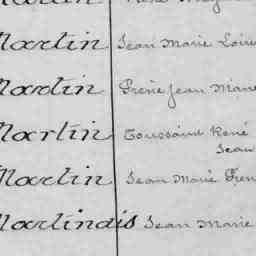 Martin Jean Marie Louis
Martin René Jean Marie
Martin Toussaint René
Jean
Martin Jean Marie
Martinais Jean Marie